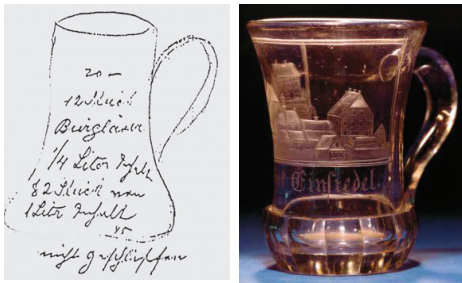 20 —
12 Stück
Burgläser
1/4 Liter Inhalt
& 2 Stück von
1 Liter Inhalt
45
nicht geschliffen
Einsiedel.